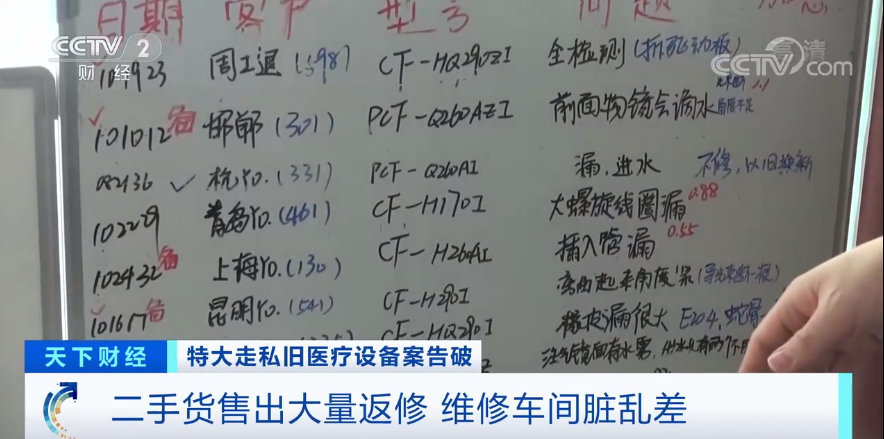 日期 客户 型号 问题
CCTV 2
财经
高清
CCTV.com
周工退 (398) CF-HQ290ZI 全检测 (拆配动板)
101012 邯郸 (301) PCF-Q260AZI 前面物镜会滴水
杭州. (331) PCF-Q260AI 漏,进水 不修,以旧换新
102229 青岛 (461) CF-H170I 大螺旋线圈漏 0.88
102432 上海 (130) CF-H260AI 插入管漏 0.55
101617 昆明 (541) CF-H290I 弯曲起来角度紧
CF-HQ290I 橡皮漏很大 E204,蛇骨
天下财经 特大走私旧医疗设备案告破
二手货售出大量返修 维修车间脏乱差